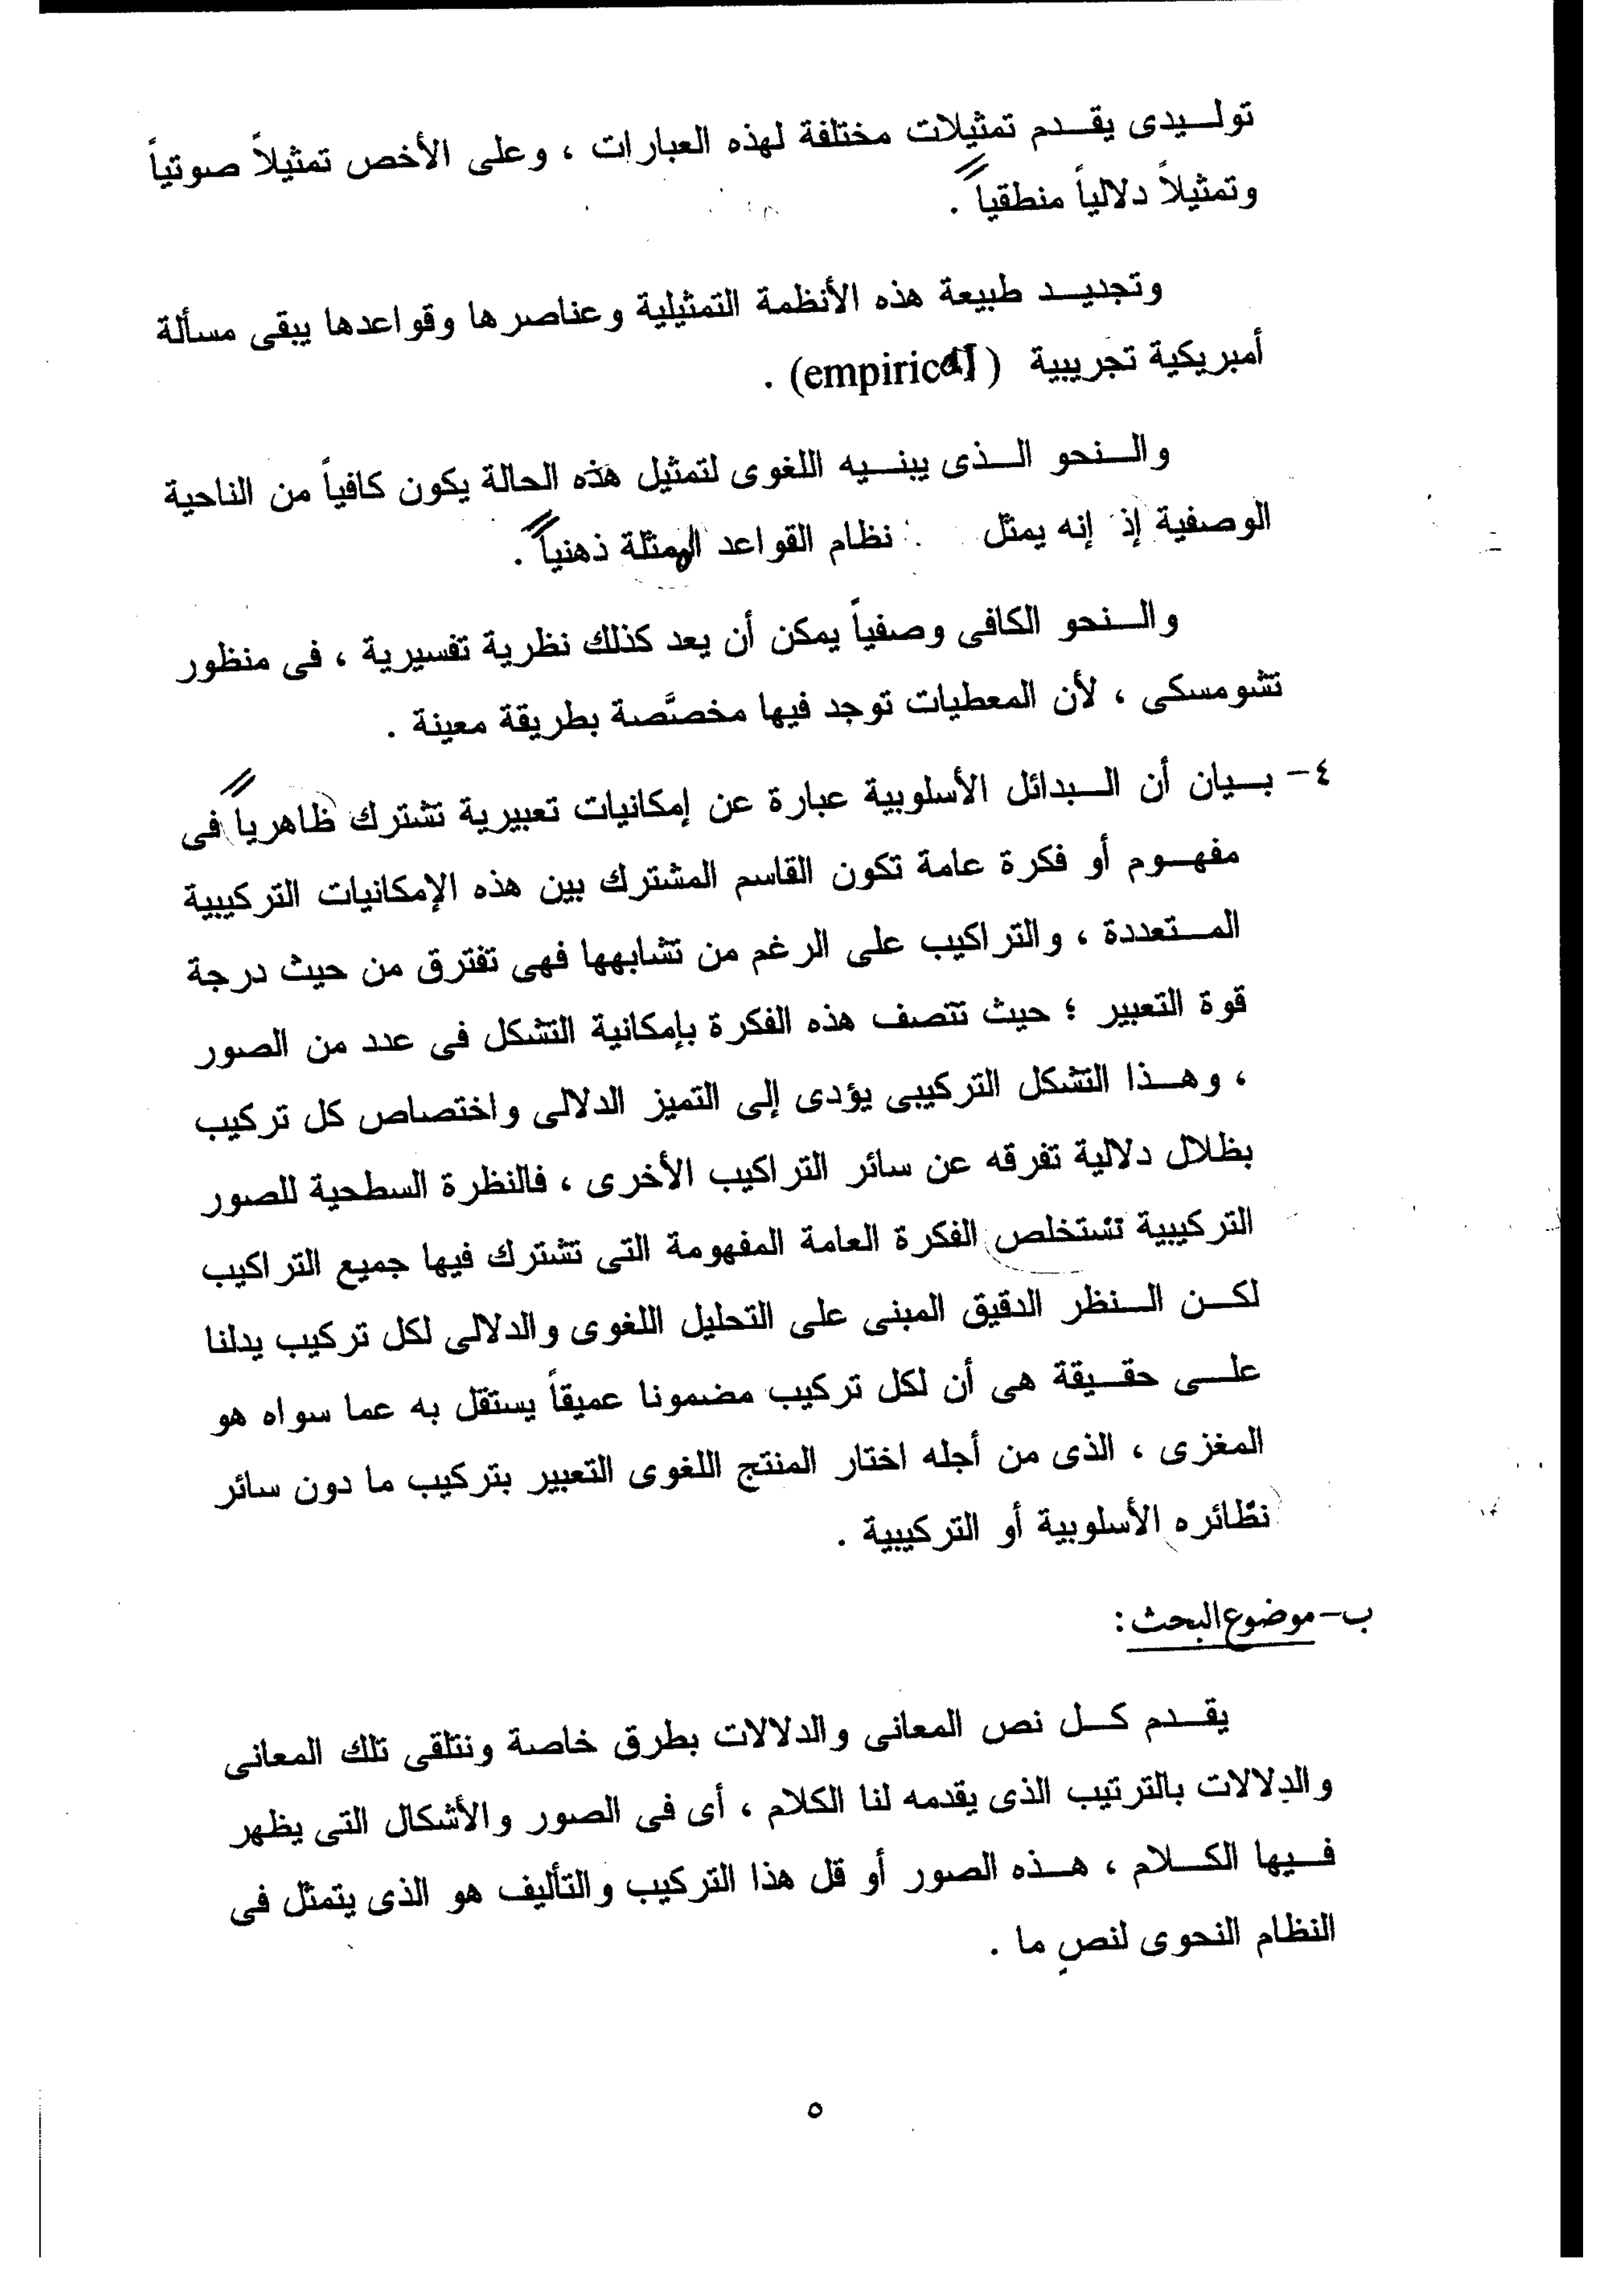 توليدى يقدم تمثيلات مختلفة لهذه العبارات ، وعلى الأخص تمثيلاً صوتياً
وتمثيلاً دلالياً منطقياً .
وتجديد طبيعة هذه الأنظمة التمثيلية وعناصرها وقواعدها يبقى مسألة
أمبريكية تجريبية (empirical) .
والنحو الذى يبنيه اللغوى لتمثيل هذه الحالة يكون كافياً من الناحية
الوصفية إذ إنه يمثل نظام القواعد الممثلة ذهنياً .
والنحو الكافى وصفياً يمكن أن يعد كذلك نظرية تفسيرية ، فى منظور
تشومسكى ، لأن المعطيات توجد فيها مخصَّصة بطريقة معينة .
٤- بيان أن البدائل الأسلوبية عبارة عن إمكانيات تعبيرية تشترك ظاهرياً فى
مفهوم أو فكرة عامة تكون القاسم المشترك بين هذه الإمكانيات التركيبية
المتعددة ، والتراكيب على الرغم من تشابهها فهى تفترق من حيث درجة
قوة التعبير ؛ حيث تتصف هذه الفكرة بإمكانية التشكل فى عدد من الصور
، وهذا التشكل التركيبى يؤدى إلى التميز الدلالى واختصاص كل تركيب
بظلال دلالية تفرقه عن سائر التراكيب الأخرى ، فالنظرة السطحية للصور
التركيبية تستخلص الفكرة العامة المفهومة التى تشترك فيها جميع التراكيب
لكن النظر الدقيق المبنى على التحليل اللغوى والدلالى لكل تركيب يدلنا
على حقيقة هى أن لكل تركيب مضمونا عميقاً يستقل به عما سواه هو
المغزى ، الذى من أجله اختار المنتج اللغوى التعبير بتركيب ما دون سائر
نظائره الأسلوبية أو التركيبية .
ب- موضوع البحث :
يقدم كل نص المعانى والدلالات بطرق خاصة ونتلقى تلك المعانى
والدلالات بالترتيب الذى يقدمه لنا الكلام ، أى فى الصور والأشكال التى يظهر
فيها الكلام ، هذه الصور أو قل هذا التركيب والتأليف هو الذى يتمثل فى
النظام النحوى لنصٍ ما .
٥